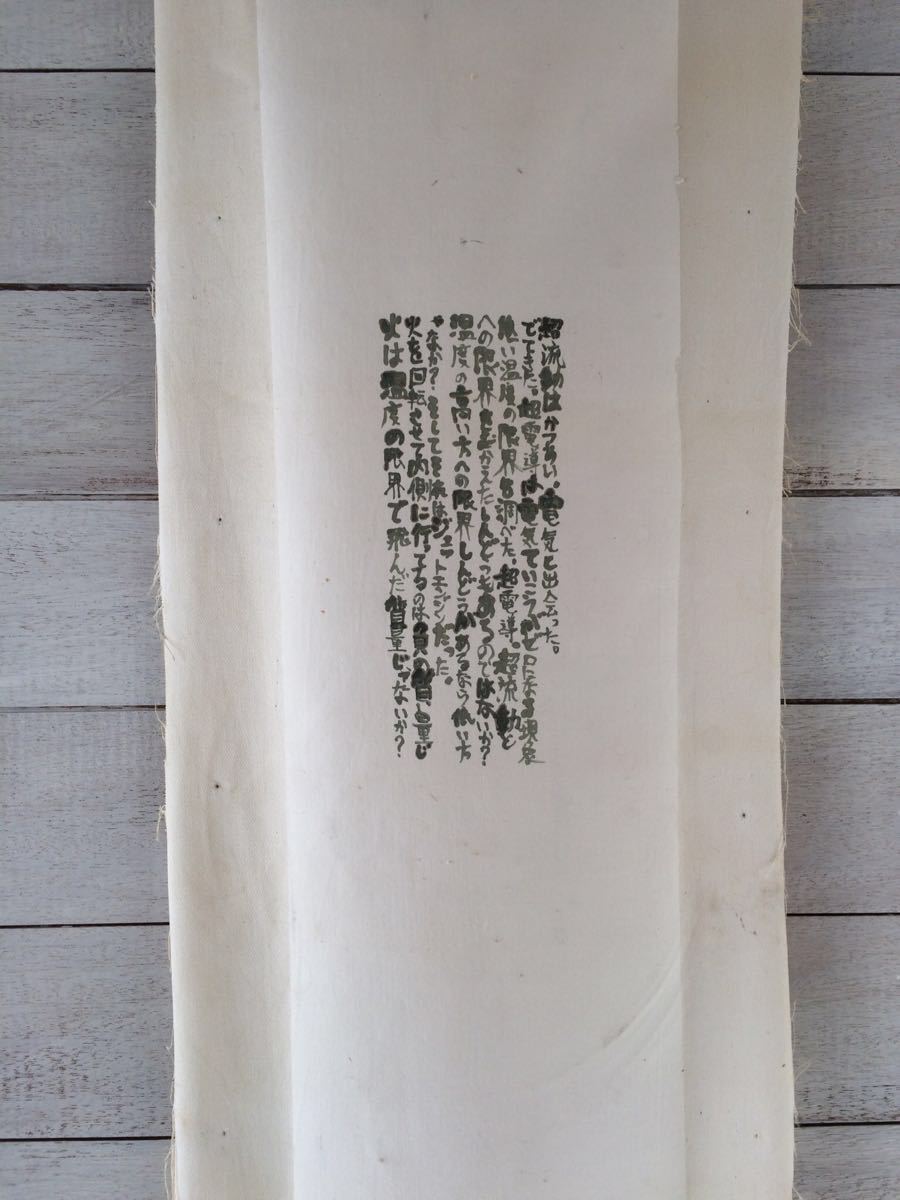 超流動はかつあい。電気と出会った。
でてきた。超電導は、電気ていこうがゼロになる現象
低い温度の限界を調べた超電導。超流動と
への限界をむかえたしんどうもあるのではないか?
温度の高い方への限界しんどうがあるなら低い方
なか?そしてそれは
火を回転させて内側に行ってるのは負の質量じ
火は温度の限界で飛んだ質量じゃないか?